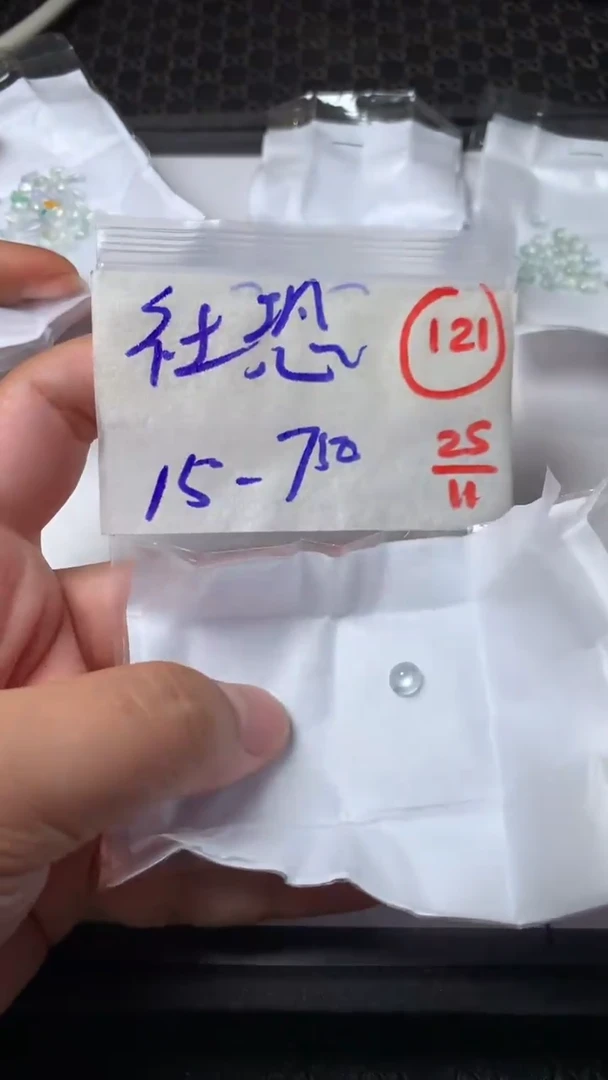 社恐 121
15-750 25
11